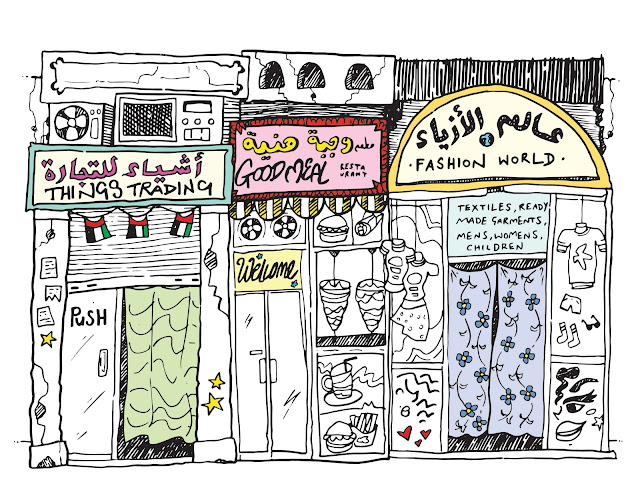 أشياء للتجارة
THINGS TRADING
PUSH
مطعم وجبة هنية
GOOD MEAL RESTA
URANT
Welcome
عالم الأزياء
· FASHION WORLD ·
TEXTILES, READY
MADE GARMENTS,
MENS, WOMENS,
CHILDREN